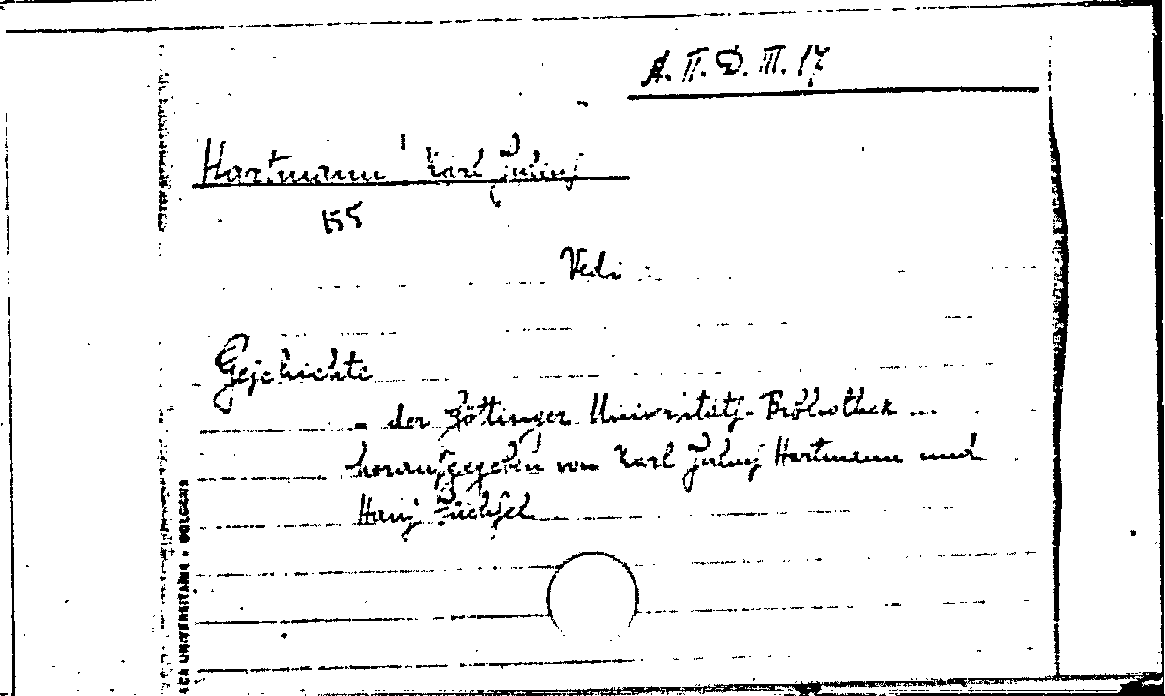 A. II. D. II. 17
Hartmann Karl Julius
155
Vedi
Geschichte
der Göttinger Universitäts-Bibliothek ...
herausgegeben von Karl Julius Hartmann und
Hans Füchsel
UNIVERSITARIA • BOLOGNA